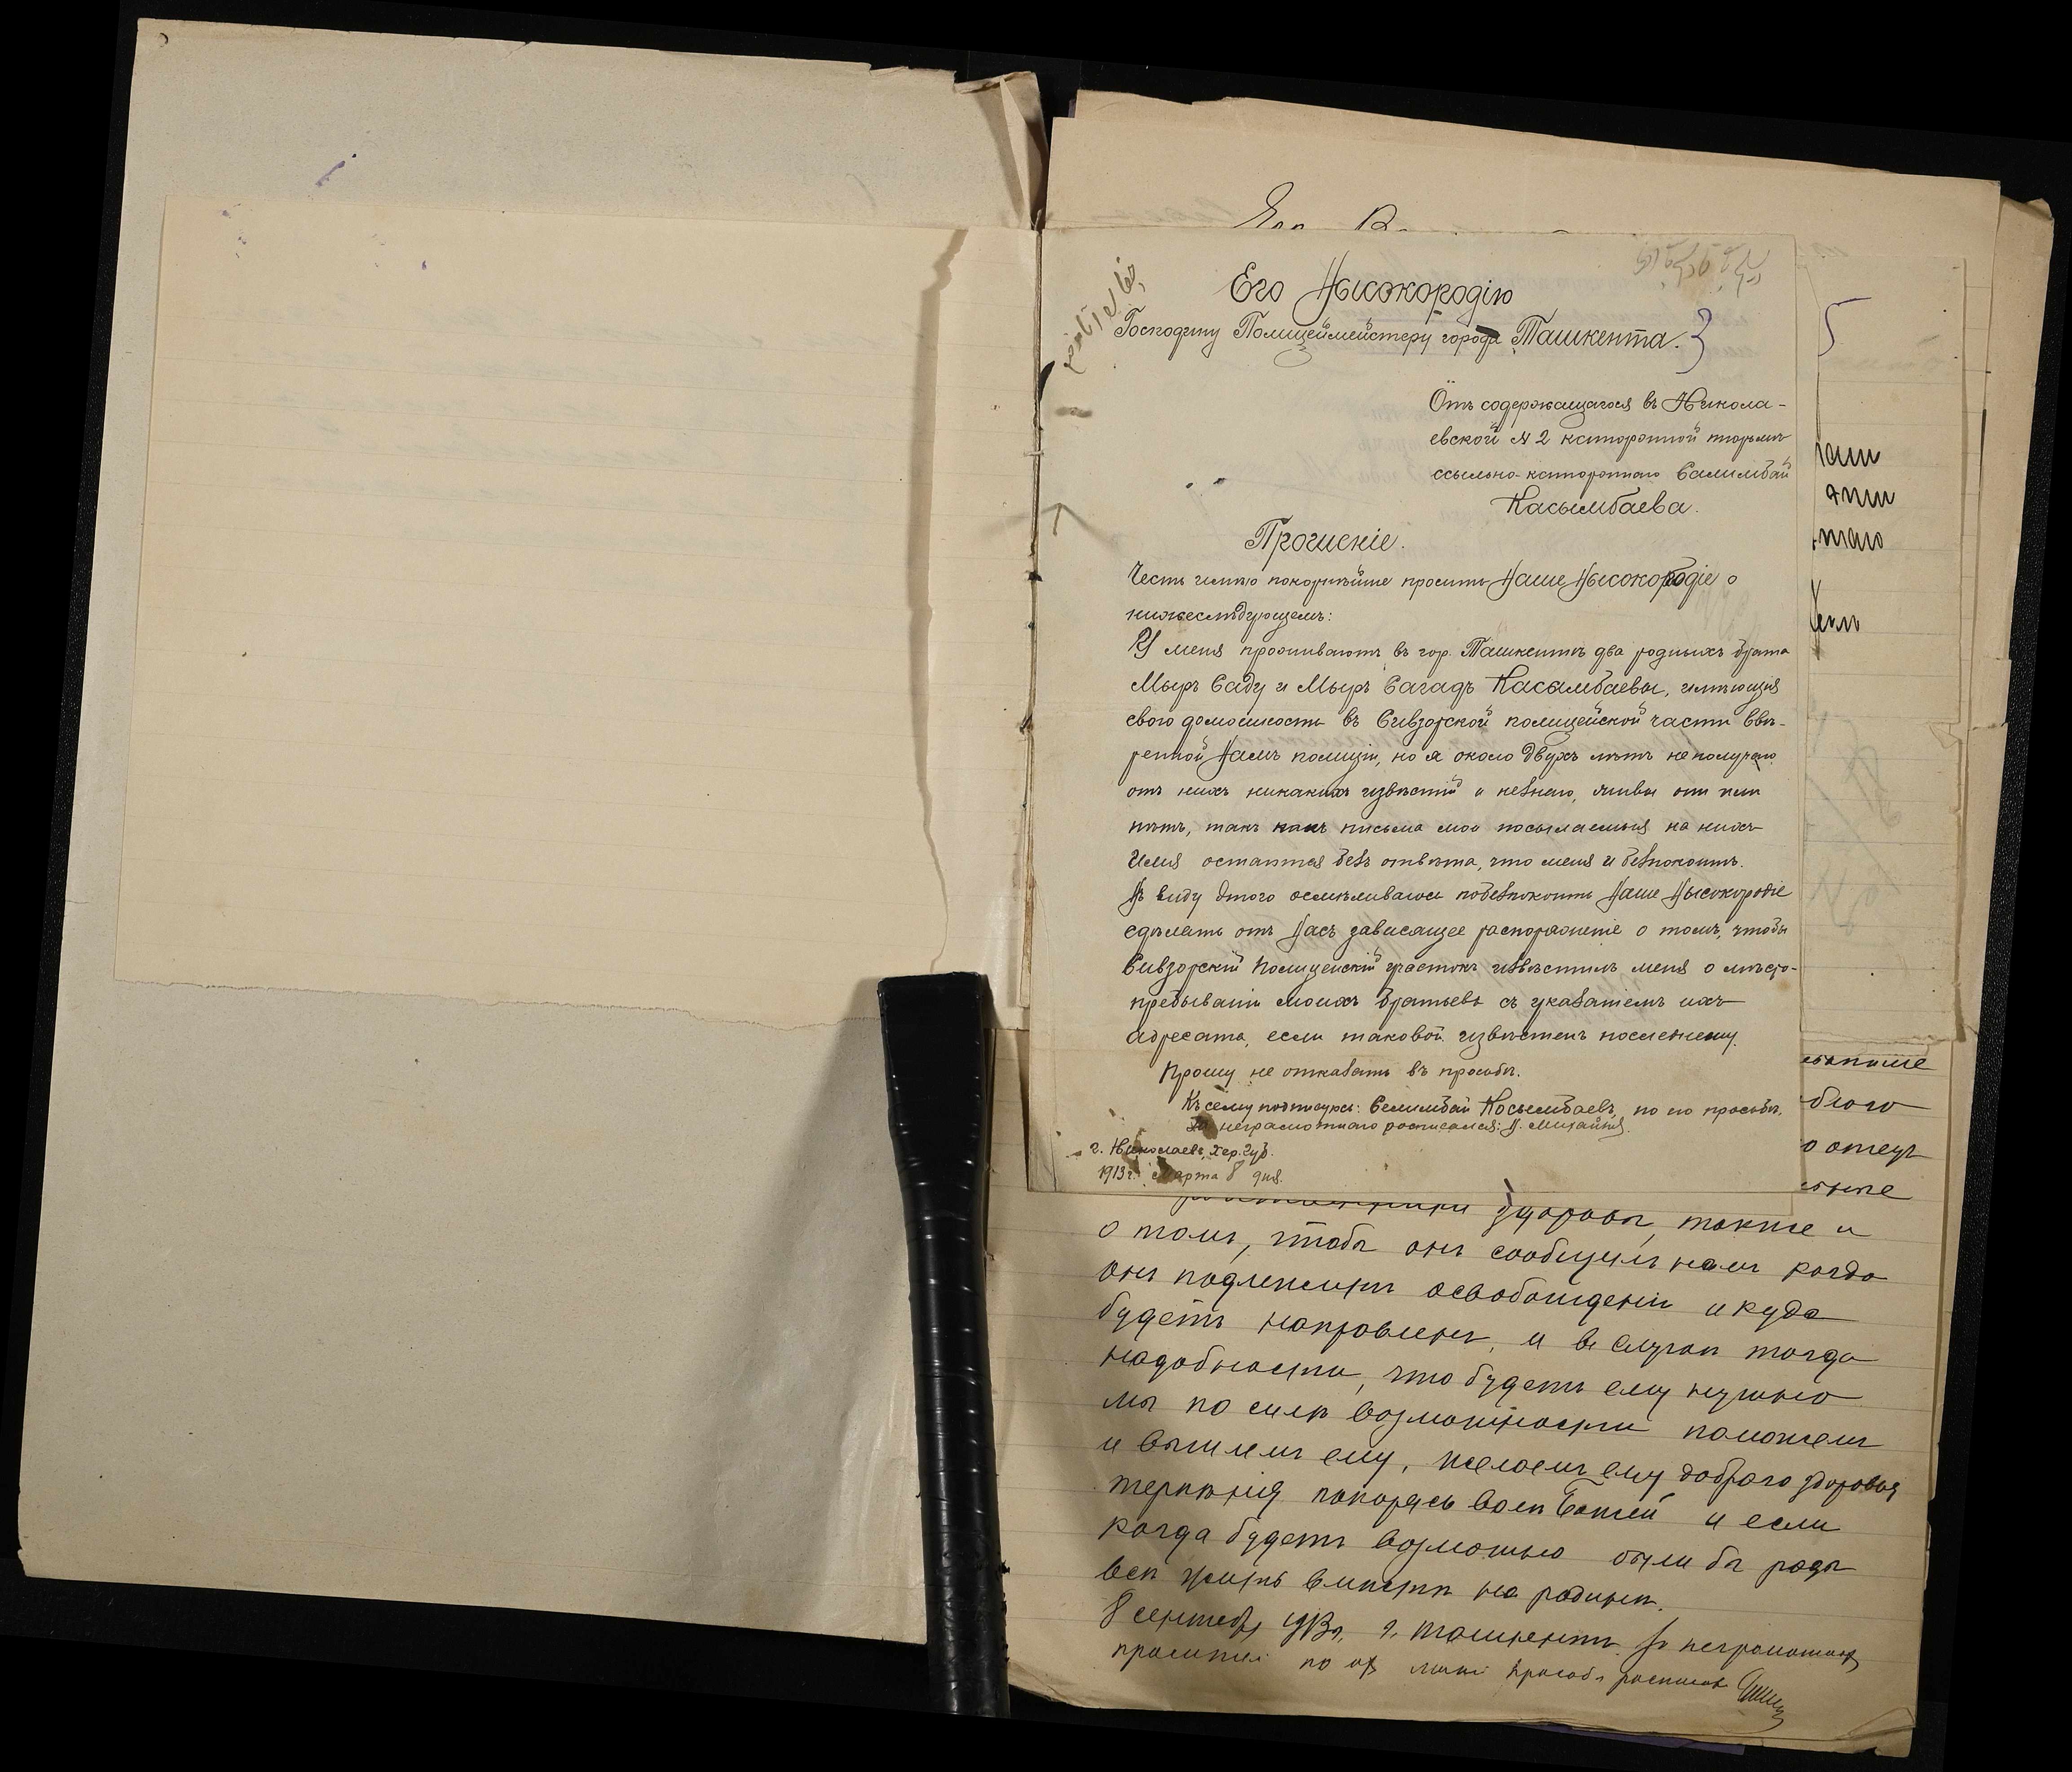 Его Высокородію
Господину Полицеймейстеру города Ташкента.
Отъ содержащагося въ Никола-
евской № 2 каторжной тюрьмѣ
ссыльно-каторжнаго Салимбай
Касымбаева.
Прошеніе.
Честь имѣю покорнѣйше просить Ваше Высокородіе о
нижеслѣдующемъ:
У меня проживаютъ въ гор. Ташкентѣ два родныхъ брата
Мыръ Саду и Мыръ Сагадъ Касымбаевы, имѣющія
свою домошность въ Сивзорской полицейской части ввѣ-
ренной Вамъ полиціи, но я около двухъ лѣтъ не получаю
отъ нихъ никакихъ извѣстій и незнаю, живы они или
нѣтъ, такъ какъ письма мои посылаемыя на ихъ
имя остаются безъ отвѣта, что меня и безпокоитъ.
Въ виду этого осмѣливаюсь побезпокоить Ваше Высокородіе
сдѣлать отъ Васъ зависящее распоряженіе о томъ, чтобы
Сивзорскій Полицейскій участокъ извѣстилъ меня о мѣсто-
пребываніи моихъ братьевъ съ указаніемъ ихъ
адресата, если таковой извѣстенъ послѣднему.
Прошу не отказать въ просьбѣ.
Къ сему подписуюсь: Селимбай Касымбаевъ, по его просьбѣ,
за неграмотнаго росписался:
г. Николаевъ, Хер. губ.
1913 г. Марта 8 дня.
здоровы, также и
о томъ, чтобы онъ сообщилъ намъ когда
онъ подлежитъ освобожденію и куда
будетъ направленъ, и въ случаѣ тогда
надобности, что будетъ ему нужно
мы по силѣ возможности поможемъ
и вышлемъ ему, желаемъ ему доброго здоровья
терпѣнія покорясь волѣ Божіей и если
когда будетъ возможно были бы рады
всѣ жить вмѣстѣ на родинѣ.
8 сентября 1913 г. г. Ташкентъ за неграмотн.
по их личн. просьбѣ росписался